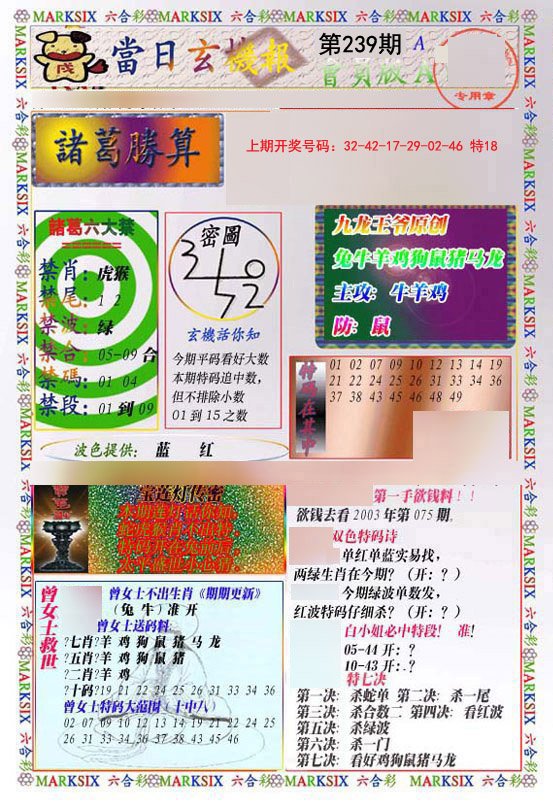 MARKSIX 六合彩 MARKSIX 六合彩 MARKSIX 六合彩 MARKSIX 六合彩
當日玄機報
第239期 A
會員版A
专用章
諸葛勝算
上期开奖号码：32-42-17-29-02-46 特18
諸葛六大禁
禁肖：虎猴
禁尾：1 2
禁波：绿
禁合：05-09 合
禁碼：01 04
禁段：01 到 09
密圖
玄機話你知
今期平码看好大数
本期特码追中数，
但不排除小数
01 到 15 之数
九龙王爷原创
兔牛羊鸡狗鼠猪马龙
主攻：牛羊鸡
防：鼠
特码在其中
01 02 07 09 10 12 13 14 19
21 22 24 25 26 31 33 34 36
37 38 43 45 46 48 49
波色提供： 蓝 红
宝莲灯传密
第一手欲钱料！！
欲钱去看 2003 年第 075 期。
双色特码诗
单红单蓝实易找，
两绿生肖在今期？（开：？）
今期绿波单数发，
红波特码仔细杀？（开：？）
白小姐必中特段！ 准！
05-44 开：？
10-43 开：？
特七决
第一决：杀蛇单 第二决：杀一尾
第三决：杀合数二 第四决：看红波
第五决：杀绿波
第六决：杀一门
第七决：看好鸡狗鼠猪马龙
曾女士救世
曾女士不出生肖《期期更新》
（兔 牛）准 开
曾女士送码料
?七肖?羊 鸡 狗 鼠 猪 马 龙
?五肖?羊 鸡 狗 鼠 猪
?二肖?羊 鸡
?十码?19 21 22 24 25 26 31 33 34 36
曾女士特码大范围（十中八）
02 07 09 10 12 13 14 19 21 22 24 25
26 31 33 34 36 37 38 43 45 46
MARKSIX 六合彩 MARKSIX 六合彩 MARKSIX 六合彩 MARKSIX 六合彩